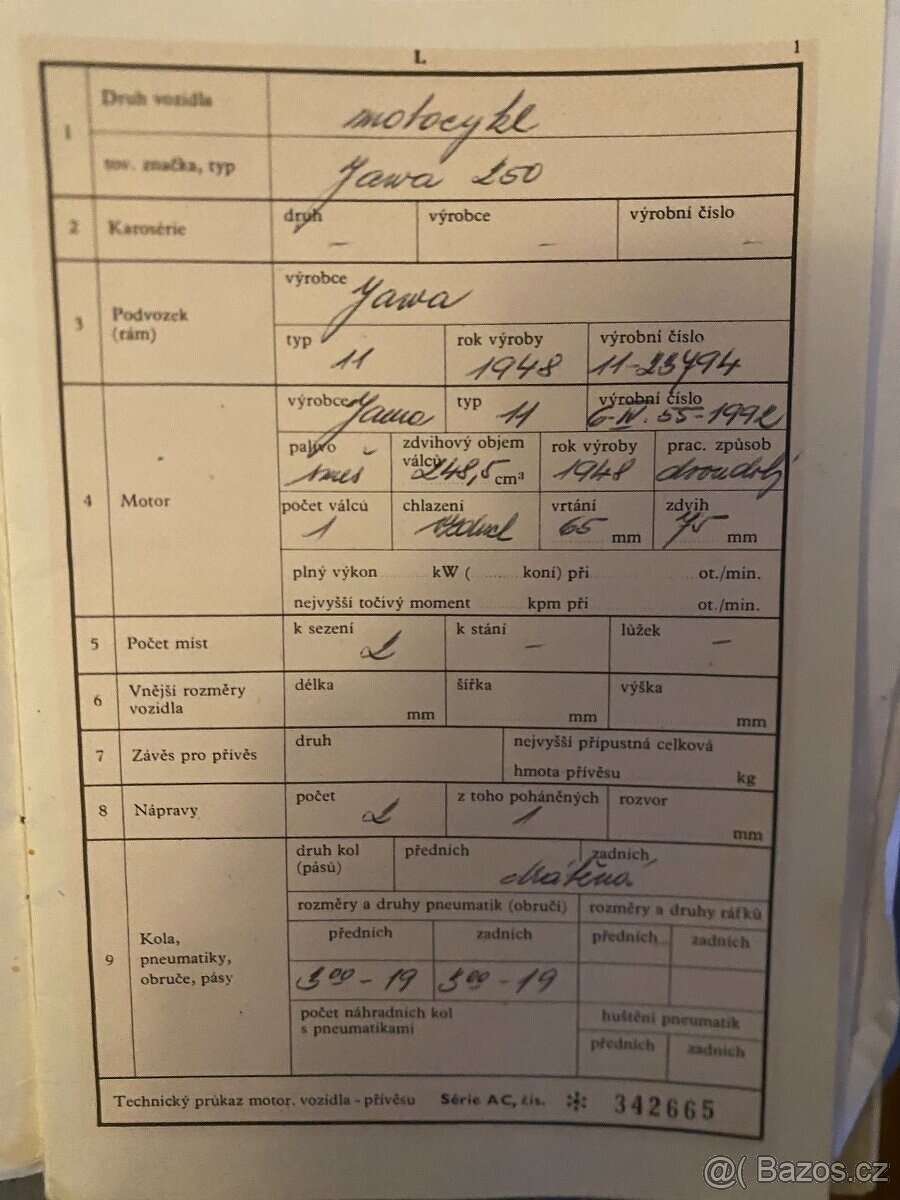 I.
1
1
Druh vozidla
motocykl
tov. značka, typ
Jawa 250
2
Karosérie
druh
–
výrobce
–
výrobní číslo
–
3
Podvozek
(rám)
výrobce
Jawa
typ
11
rok výroby
1948
výrobní číslo
11-23494
4
Motor
výrobce
Jawa
typ
11
výrobní číslo
6-IV. 55-1992
palivo
směs
zdvihový objem
válců
248,5 cm³
rok výroby
1948
prac. způsob
dvoudobý
počet válců
1
chlazení
vzduch
vrtání
65 mm
zdvih
75 mm
plný výkon kW ( koní) při ot./min.
nejvyšší točivý moment kpm při ot./min.
5
Počet míst
k sezení
2
k stání
–
lůžek
–
6
Vnější rozměry
vozidla
délka
mm
šířka
mm
výška
mm
7
Závěs pro přívěs
druh
nejvyšší přípustná celková
hmota přívěsu kg
8
Nápravy
počet
2
z toho poháněných
1
rozvor
mm
9
Kola,
pneumatiky,
obruče, pásy
druh kol
(pásů)
předních
zadních
drátěná
rozměry a druhy pneumatik (obručí)
rozměry a druhy ráfků
předních
zadních
předních
zadních
3⁰⁰ - 19
3⁰⁰ - 19
počet náhradních kol
s pneumatikami
huštění pneumatik
předních
zadních
Technický průkaz motor. vozidla - přívěsu Série AC, čis. 342665
@( Bazos.cz